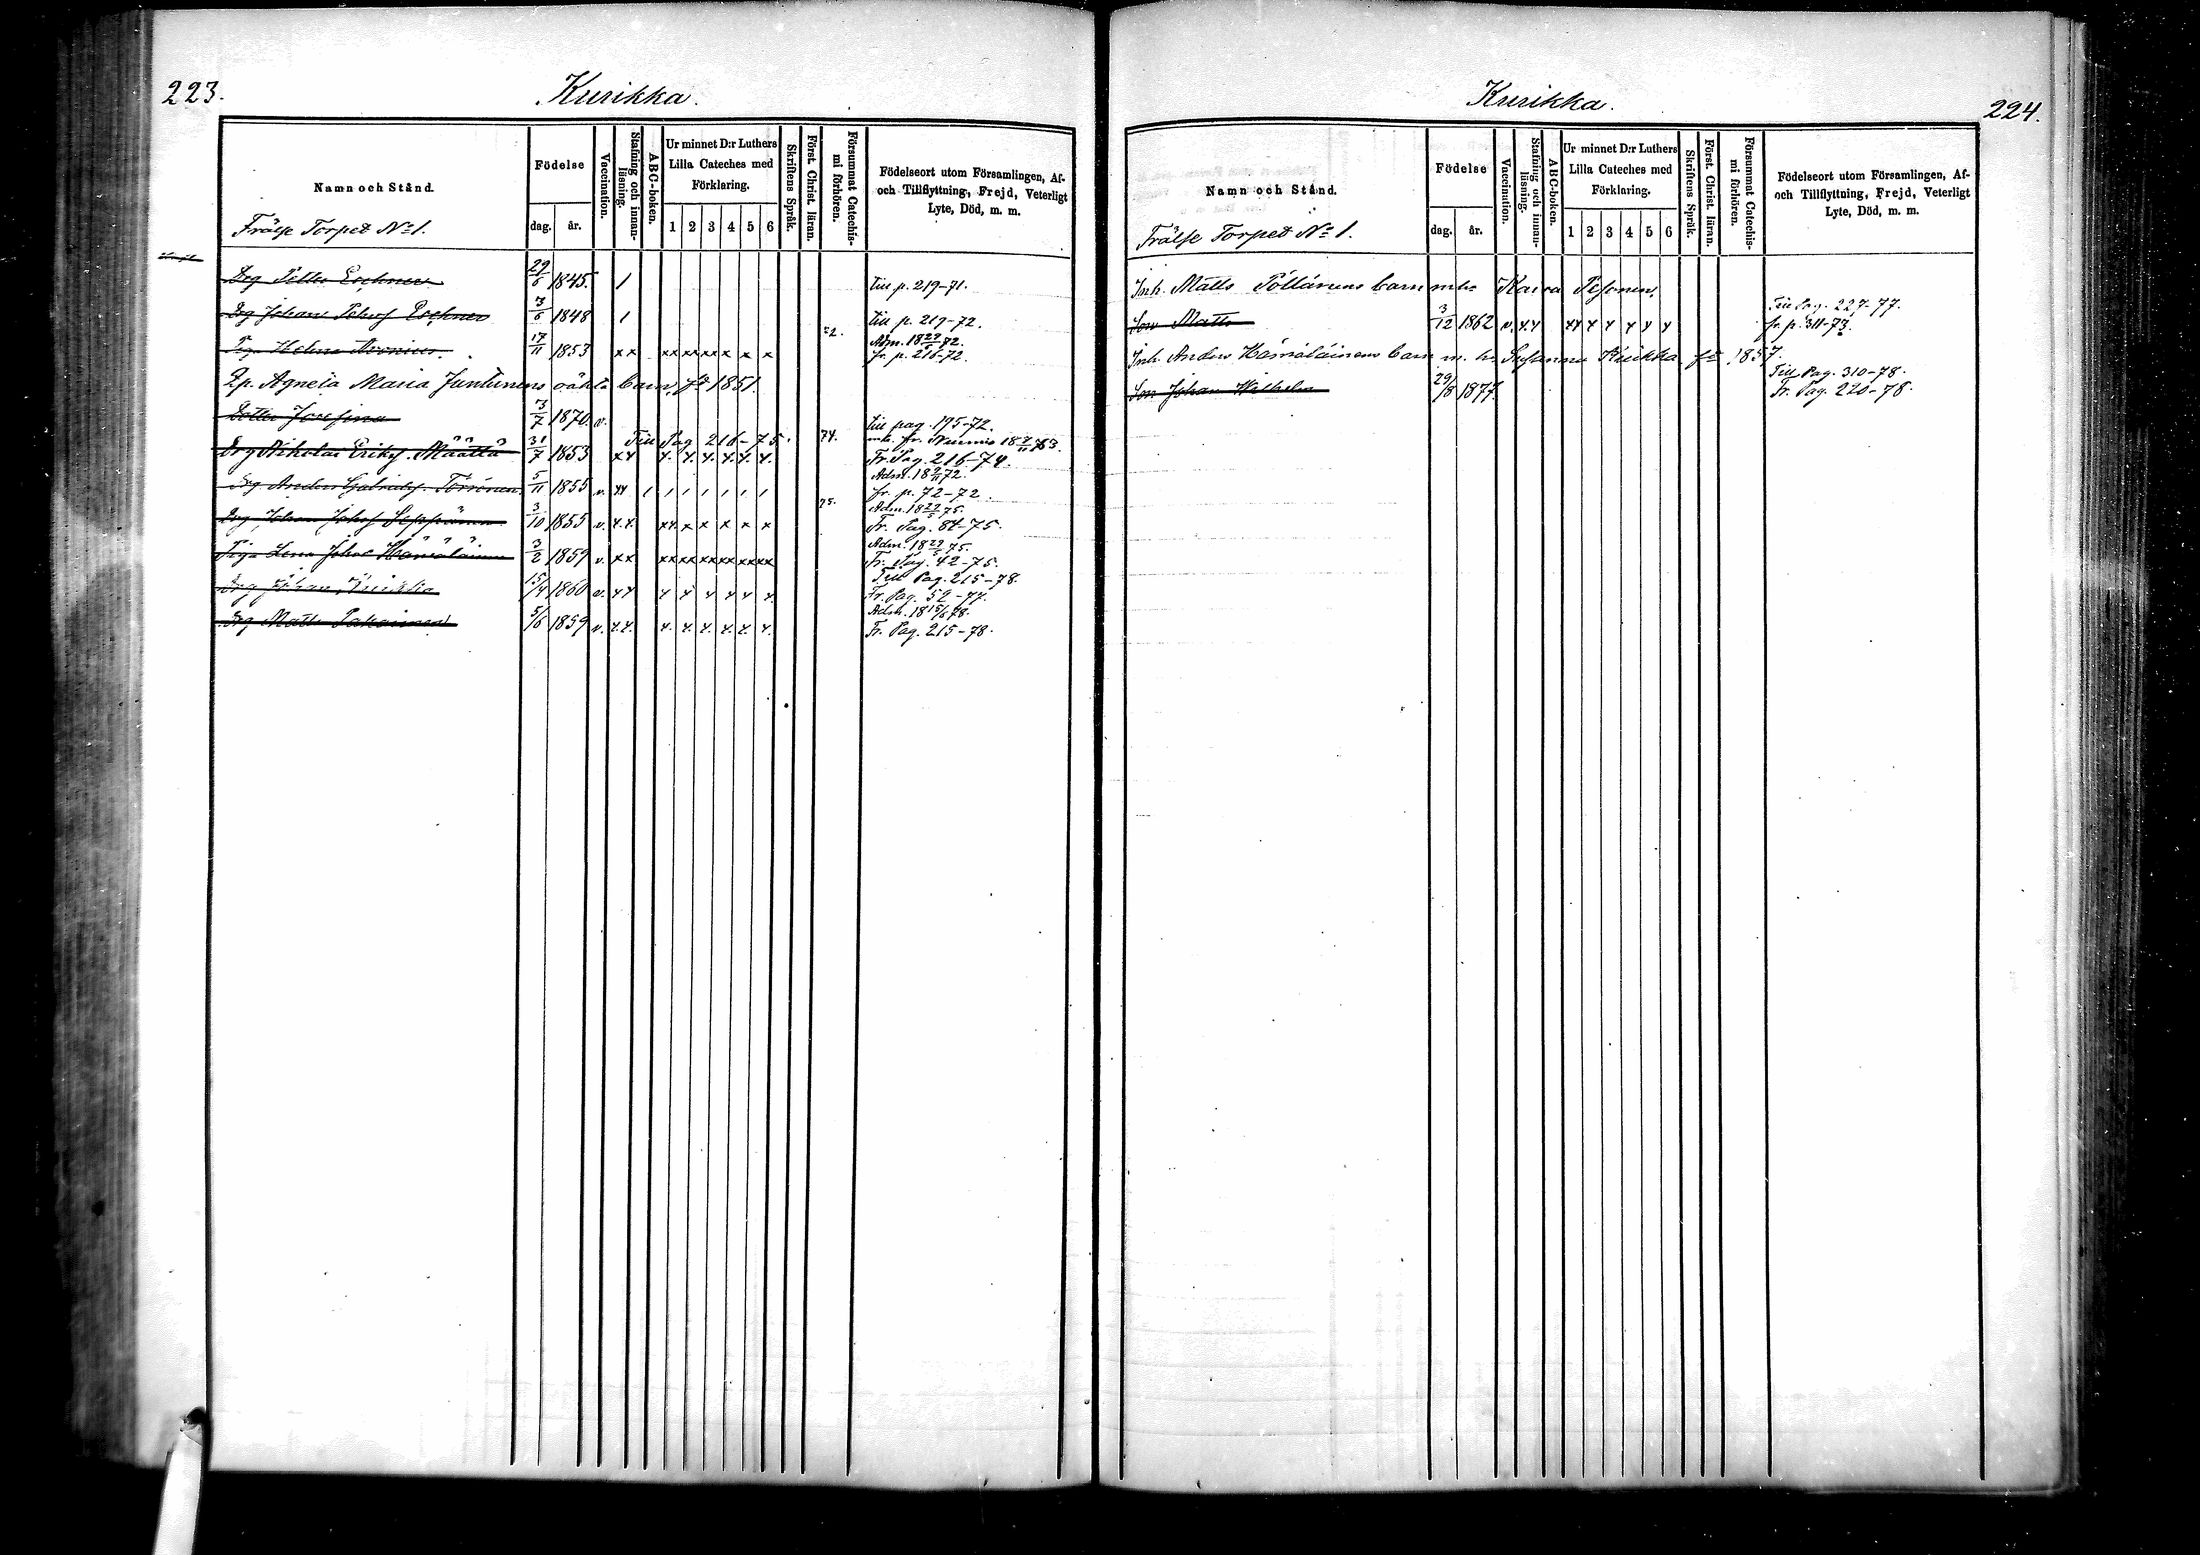 223.
Kurikka.
Namn och Stånd.
Födelse
dag.
år.
Vaccination.
Stafning och innanläsning.
ABC-boken.
Ur minnet D:r Luthers
Lilla Cateches med
Förklaring.
1 2 3 4 5 6
Skriftens Språk.
Först. Christ. läran.
Försummat Catechismi förhören.
Födelseort utom Församlingen, Af-
och Tillflyttning, Frejd, Veterligt
Lyte, Död, m. m.
Frälse Torpet No 1.
Drg Petter 29/6 1845. 1 till p. 219-71.
Drg Johan 3/6 1848 1 till p. 219-72.
72. Adm. 18 72.
Piga Helena 17/11 1853 xx xx xx xx x x x fr. p. 216-72.
Qp. Agneta Maria Juntunens oäkta barn, fd 1851.
Dotter Josefina 3/7 1870. v. till pag. 195-72.
Till Pag 216-75. 74.
Drg Nikolai Eriks. Määttä 31/7 1853 x4 4. 4. 4. 4. 4. 4. Fr. Pag. 216-74.
Adm. 18 72.
Drg Anders Gabriels. Törrönen 5/11 1855 v. 44 1 1 1 1 1 1 1 fr. p. 72-72.
75. Adm. 18 29/5 75.
Drg Johan Johs. Seppänen 3/10 1855 v. 4.4. x4. x x x x x Fr. Pag. 84-75.
Adm. 18 29/5 75.
Piga Lena Johs. Hämäläinen 3/2 1859 v. xx xx xx xx xx xx xx Fr. Pag. 42-75.
Till Pag. 215-78.
Drg Johan 15/4 1860 v. 44 4 4 4 4 4 4. Fr. Pag. 52-77.
Adm. 18 15/6 78.
Drg Matts Pakarinen 5/6 1859 v. 4.4. 4. 4. 4. 4. 4. 4. Fr. Pag. 215-78.
Kurikka.
224.
Namn och Stånd.
Födelse
dag.
år.
Vaccination.
Stafning och innanläsning.
ABC-boken.
Ur minnet D:r Luthers
Lilla Cateches med
Förklaring.
1 2 3 4 5 6
Skriftens Språk.
Först. Christ. läran.
Försummat Catechismi förhören.
Födelseort utom Församlingen, Af-
och Tillflyttning, Frejd, Veterligt
Lyte, Död, m. m.
Frälse Torpet No 1.
Inh. Matts Pöllänens barn m. hu Kaisa Pesonen.
Till Pag. 227-77.
Son Matts 3/12 1862 v. 4.4 44 4 4 4 4 4 fr. p. 311-73.
Inh. Anders Hämäläinens barn m. hu Susanna Kuikka fd 1857.
Till Pag. 310-78.
Son Johan Wilhelm 29/8 1877. Fr. Pag. 220-78.